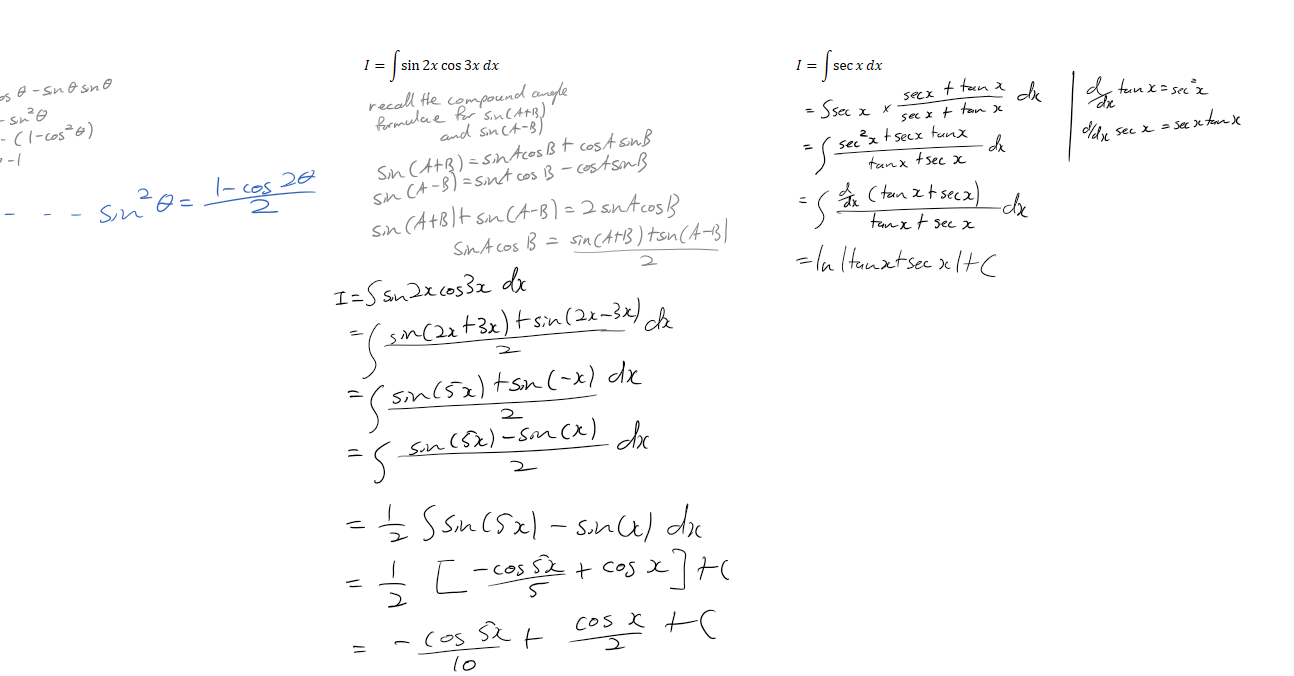 os θ - sin θ sin θ
- sin²θ
- (1-cos²θ)
-1
- - - sin²θ = (1 - cos 2θ)/2
I = ∫ sin 2x cos 3x dx
recall the compound angle
formulae for sin(A+B)
and sin(A-B)
sin(A+B) = sinAcosB + cosAsinB
sin(A-B) = sinA cosB - cosAsinB
sin(A+B) + sin(A-B) = 2 sinAcosB
sinAcosB = (sin(A+B) + sin(A-B))/2
I = ∫ sin2xcos3x dx
= ∫ (sin(2x+3x) + sin(2x-3x))/2 dx
= ∫ (sin(5x) + sin(-x))/2 dx
= ∫ (sin(5x) - sin(x))/2 dx
= 1/2 ∫ sin(5x) - sin(x) dx
= 1/2 [-cos 5x/5 + cos x] + C
= - cos 5x/10 + cos x/2 + C
I = ∫ sec x dx
= ∫ sec x × (sec x + tan x)/(sec x + tan x) dx
= ∫ (sec²x + secx tanx)/(tanx + sec x) dx
= ∫ (d/dx (tan x + sec x))/(tanx + sec x) dx
= ln |tanx + sec x| + C
d/dx tan x = sec²x
d/dx sec x = sec x tan x